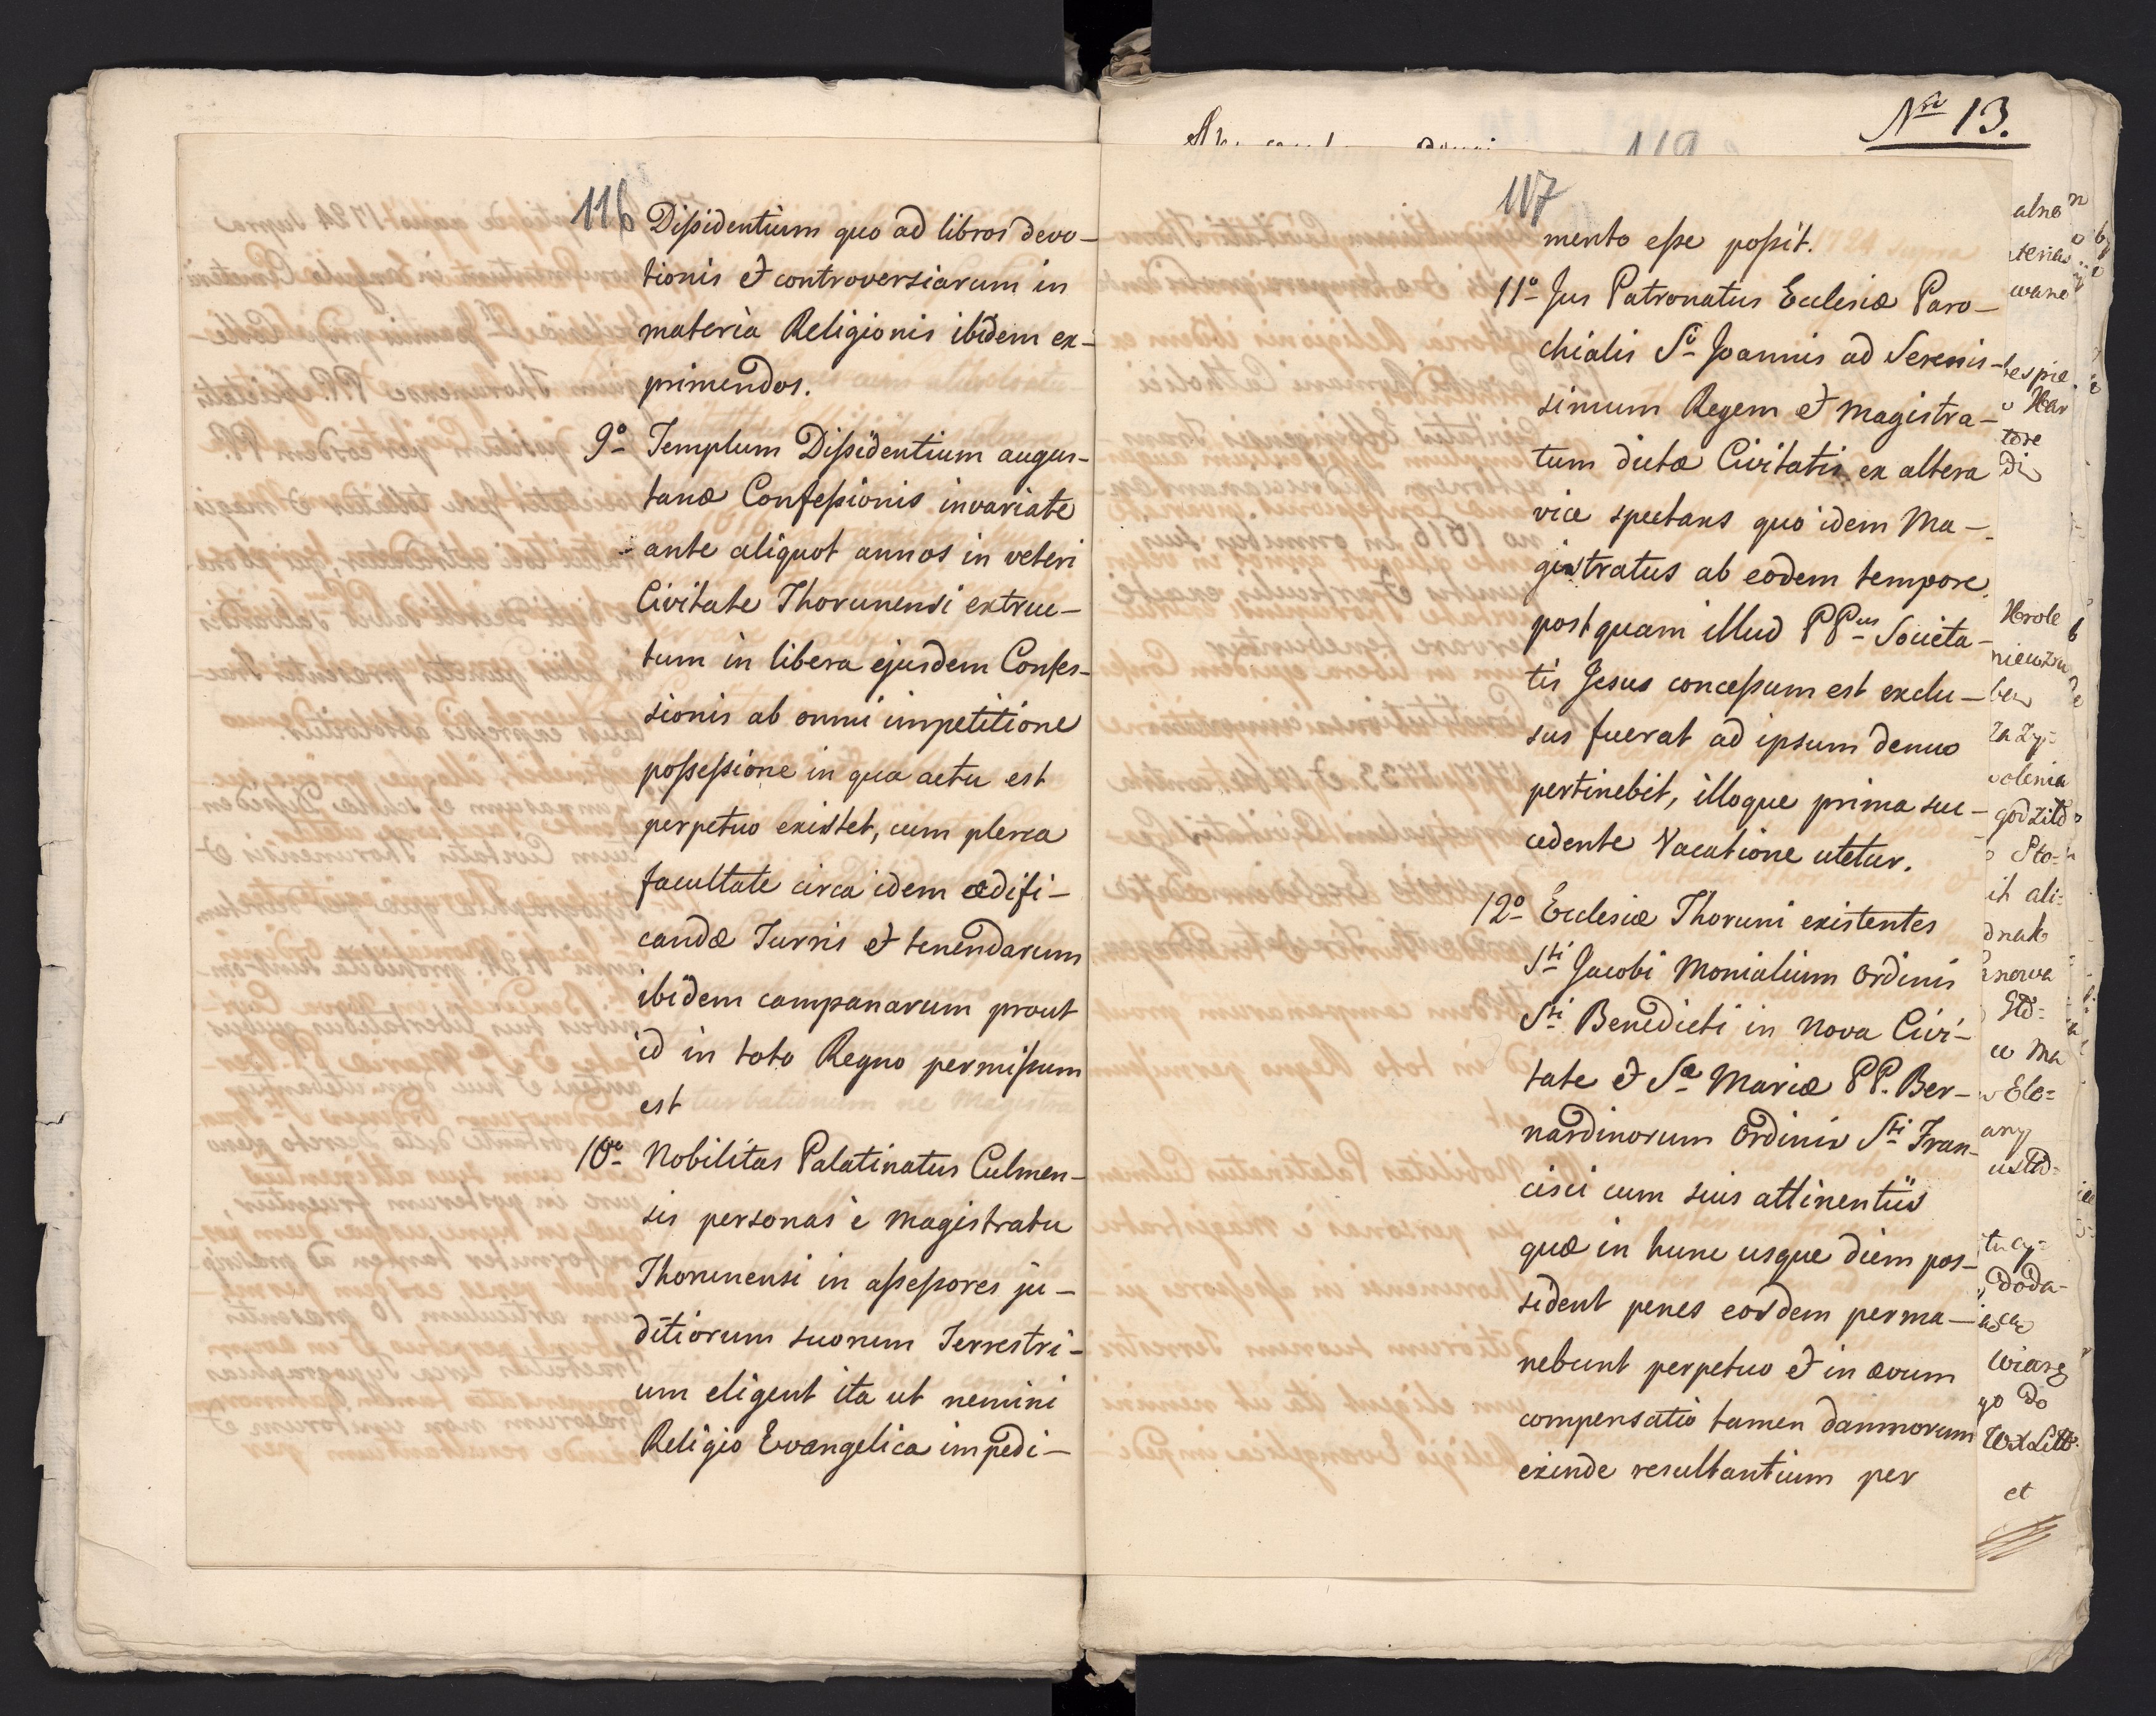 116
Dißidentium quo ad libros devo-
tionis et controversiarum in
materia Religionis ibidem ex-
primendos.
9o Templum Dißidentium augus-
tanæ Confeßionis invariatæ
ante aliquot annos in veteri
Civitate Thorunensi extruc-
tum in libera ejusdem Confes-
sionis ab omni impetitione
poßeßione in qua actu est
perpetuo existet, cum plena
facultate circa idem ædifi-
candæ Turris et tenendarum
ibidem campanarum prout
id in toto Regno permißum
est
10o Nobilitas Palatinatus Culmen-
sis personas è Magistratu
Thorunensi in aßeßores ju-
ditiorum suorum Terrestri-
um eligent ita ut nemini
Religio Evangelica impedi-
Nro 13.
119
117
mento eße poßit.
11o Jus Patronatus Ecclesiæ Paro-
chialis Si Joannis ad Serenis-
simum Regem et Magistra-
tum dictæ Civitatis ex altera
vice spectans quo idem Ma-
gistratus ab eodem tempore
postquam illud PPus Societa-
tis Jesus conceßum est exclu-
sus fuerat ad ipsum denuo
pertinebit, illoque prima suc-
cedente Vacatione utetur.
12o Ecclesiæ Thoruni existentes
Sti Jacobi Monialium Ordinis
Sti Benedicti in Nova Civi-
tate et Sæ Mariæ PP. Ber-
nardinorum Ordinis Sti Fran-
cisci cum suis attinentiis
quæ in hunc usque diem pos-
sident penes eosdem perma-
nebunt perpetuo et in ævum
compensatio tamen damnorum
exinde resultantium per